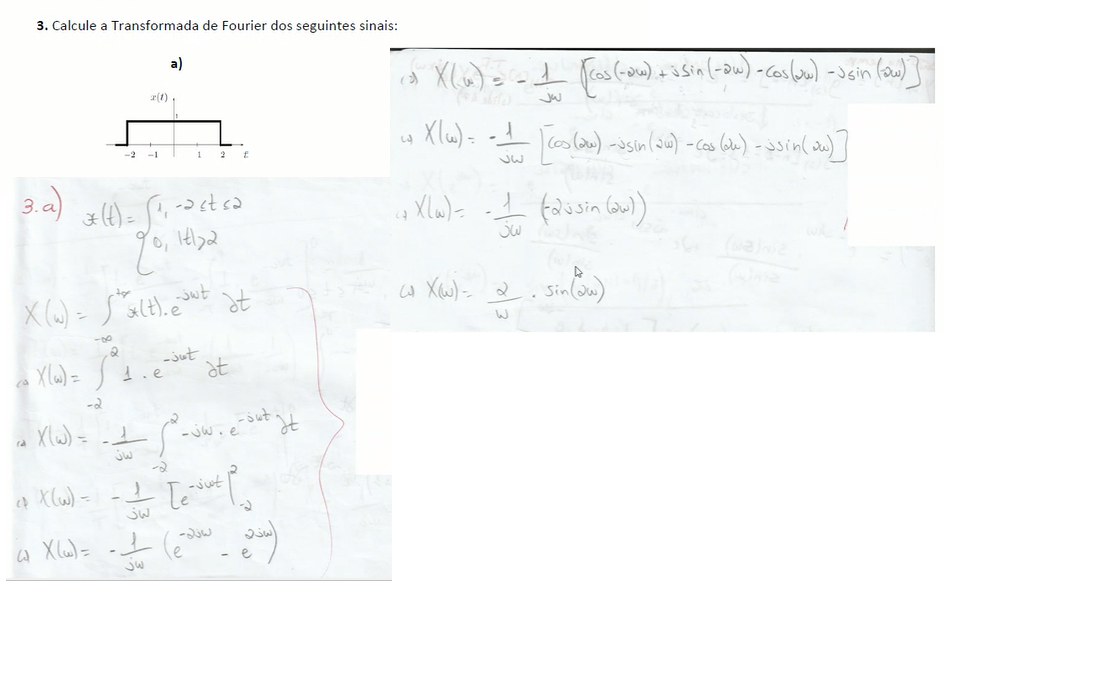 3. Calcule a Transformada de Fourier dos seguintes sinais:
a)
x(t)
1
-2 -1 1 2 t
3.a) x(t) = { 1, -2 ≤ t ≤ 2
0, |t|>2
X(w) = ∫_{-∞}^{+∞} x(t).e^{-jwt} dt
(=) X(w) = ∫_{-2}^{2} 1 . e^{-jwt} dt
(=) X(w) = - 1/jw ∫_{-2}^{2} -jw . e^{-jwt} dt
(=) X(w) = - 1/jw [e^{-jwt}|_{-2}^{2}
(=) X(w) = - 1/jw (e^{-2jw} - e^{2jw})
(=) X(w) = - 1/jw [cos(-2w) + jsin(-2w) - cos(2w) - jsin(2w)]
(=) X(w) = - 1/jw [cos(2w) - jsin(2w) - cos(2w) - jsin(2w)]
(=) X(w) = - 1/jw (-2jsin(2w))
(=) X(w) = 2/w . sin(2w)